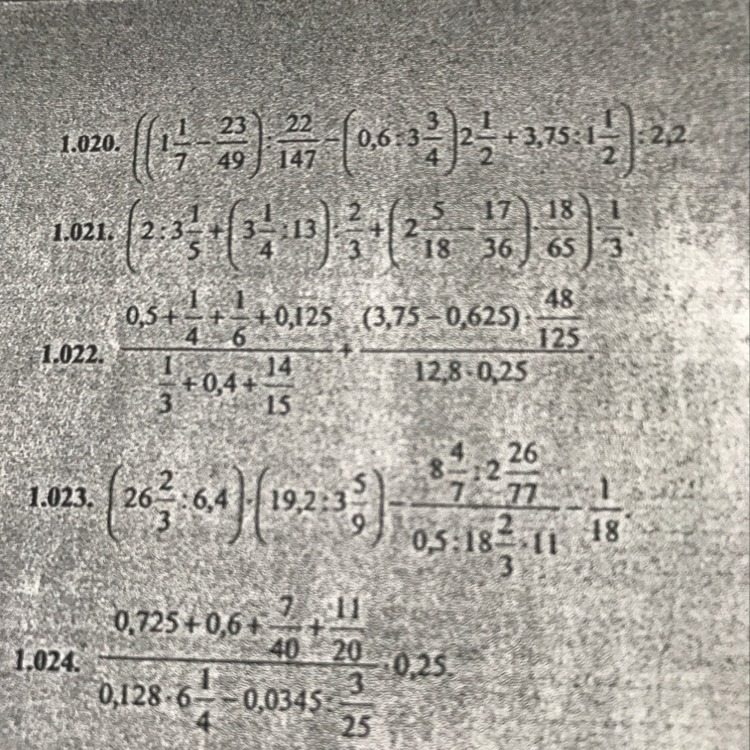 1.020. ((1 1/7 − 23/49) : 22/147 − (0,6 : 3 3/4) 2 1/2 + 3,75 : 1 1/2) : 2,2.
1.021. (2 : 3 1/5 + (3 1/4 : 13) : 2/3 + (2 5/18 − 17/36) · 18/65) · 1/3.
1.022. (0,5 + 1/4 + 1/6 + 0,125)/(1/3 + 0,4 + 14/15) + ((3,75 − 0,625) · 48/125)/(12,8 · 0,25).
1.023. (26 2/3 : 6,4) · (19,2 : 3 5/9) − (8 4/7 : 2 26/77)/(0,5 : 18 2/3 · 11) − 1/18.
1.024. (0,725 + 0,6 + 7/40 + 11/20)/(0,128 · 6 1/4 − 0,0345 : 3/25) · 0,25.